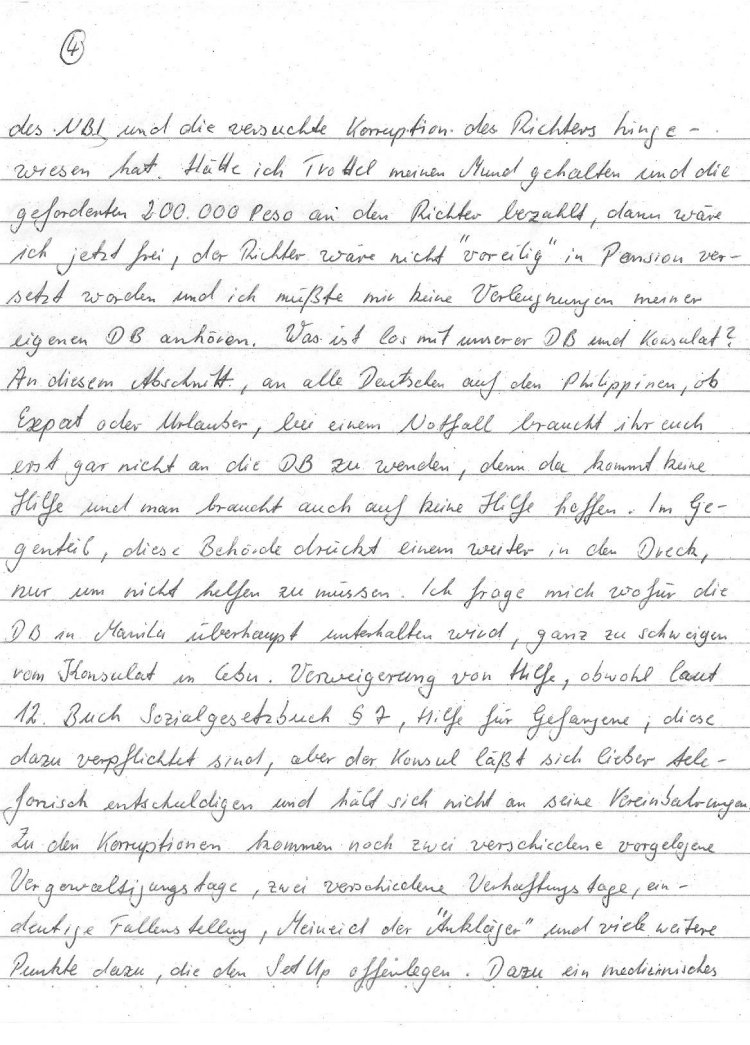 4
des NBI und die versuchte Korruption des Richters hinge-
wiesen hat. Hätte ich Trottel meinen Mund gehalten und die
geforderten 200.000 Peso an den Richter bezahlt, dann wäre
ich jetzt frei, der Richter wäre nicht "voreilig" in Pension ver-
setzt worden und ich müßte mir keine Verleugnungen meiner
eigenen DB anhören. Was ist los mit unserer DB und Konsulat?
An diesem Abschnitt, an alle Deutschen auf den Philippinen, ob
Expat oder Urlauber, bei einem Notfall braucht ihr euch
erst gar nicht an die DB zu wenden, denn da kommt keine
Hilfe und man braucht auch auf keine Hilfe hoffen. Im Ge-
genteil, diese Behörde drückt einem weiter in den Dreck,
nur um nicht helfen zu müssen. Ich frage mich wofür die
DB in Manila überhaupt unterhalten wird, ganz zu schweigen
vom Konsulat in Cebu. Verweigerung von Hilfe, obwohl laut
12. Buch Sozialgesetzbuch § 7, Hilfe für Gefangene, diese
dazu verpflichtet sind, aber der Konsul läßt sich lieber tele-
fonisch entschuldigen und hält sich nicht an seine Vereinbahrungen
Zu den Korruptionen kommen noch zwei verschiedene vorgelogene
Vergewaltigungstage, zwei verschiedene Verhaftungstage, ein-
deutige Fallenstellung, Meineid der "Ankläger" und viele weitere
Punkte dazu, die den SetUp offenlegen. Dazu ein medizinisches